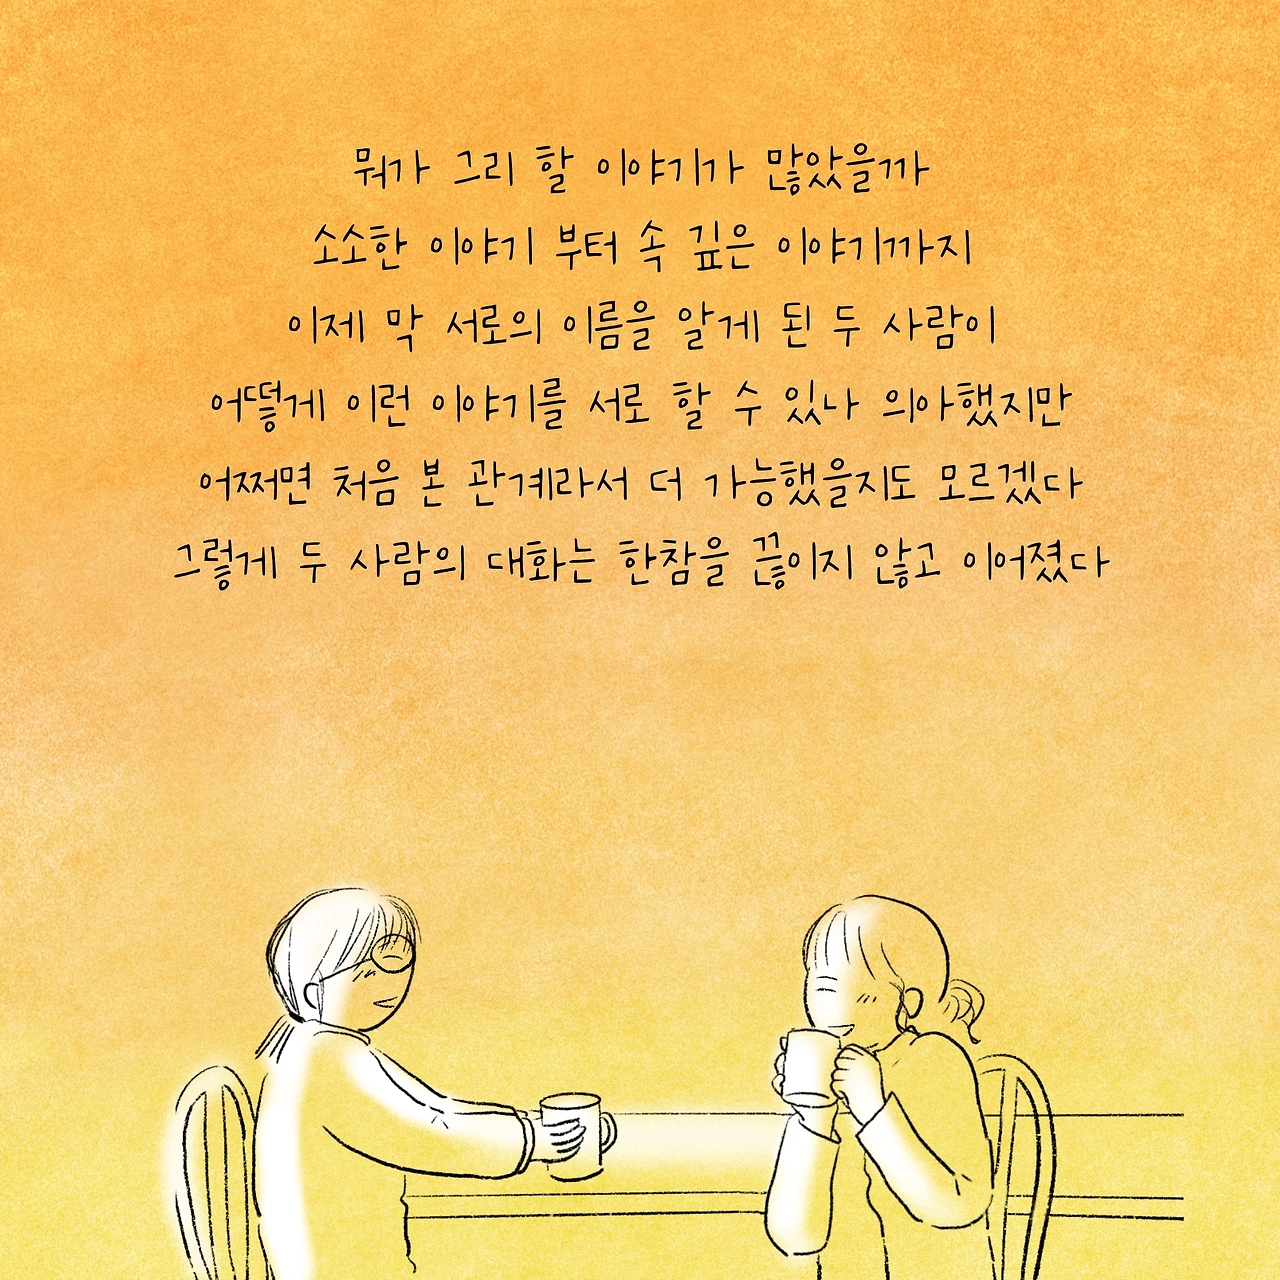 뭐가 그리 할 이야기가 많았을까
소소한 이야기 부터 속 깊은 이야기까지
이제 막 서로의 이름을 알게 된 두 사람이
어떻게 이런 이야기를 서로 할 수 있나 의아했지만
어쩌면 처음 본 관계라서 더 가능했을지도 모르겠다
그렇게 두 사람의 대화는 한참을 끊이지 않고 이어졌다